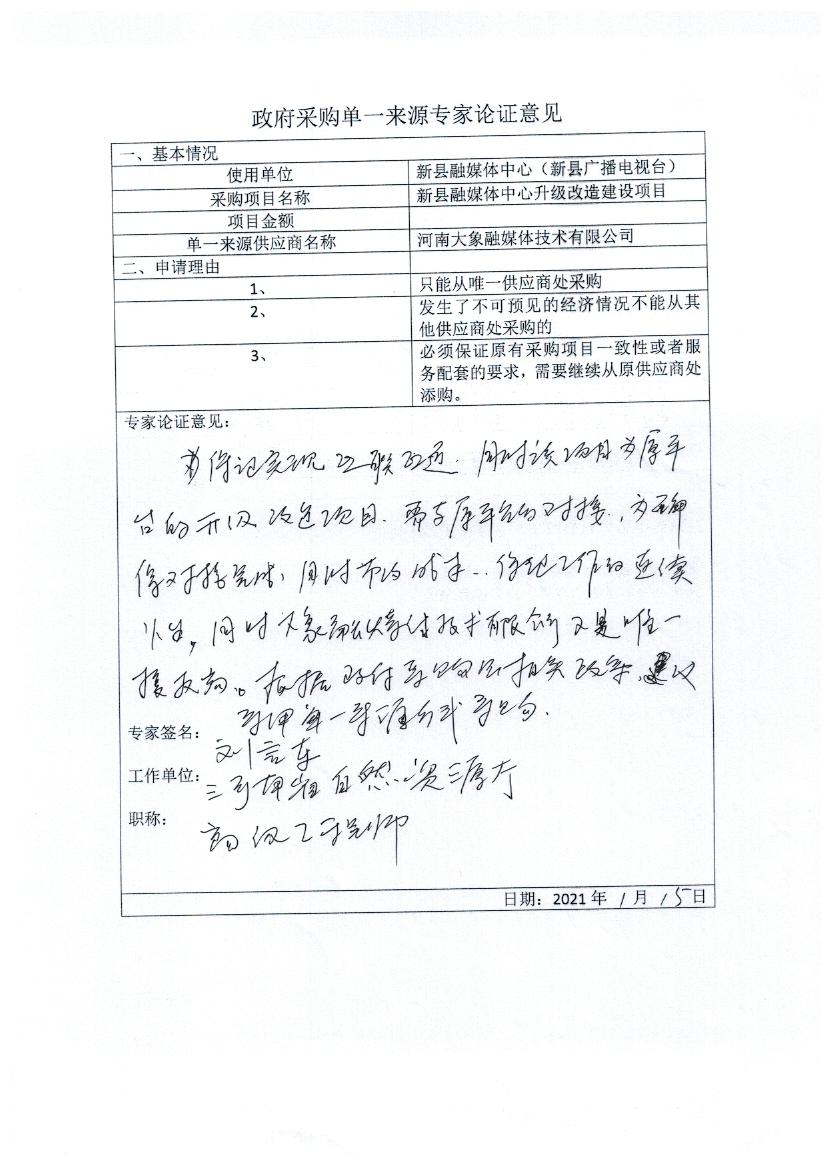 政府采购单一来源专家论证意见
一、基本情况
使用单位 新县融媒体中心（新县广播电视台）
采购项目名称 新县融媒体中心升级改造建设项目
项目金额
单一来源供应商名称 河南大象融媒体技术有限公司
二、申请理由
1、 只能从唯一供应商处采购
2、 发生了不可预见的经济情况不能从其
他供应商处采购的
3、 必须保证原有采购项目一致性或者服
务配套的要求，需要继续从原供应商处
添购。
专家论证意见：
为保证实现互联互通．同时该项目为原平
台的升级改造项目．需与原平台的对接．为确
保对接完成，同时节约成本．保证工作的连续
同时大象融媒体技术有限公司又是唯一
根据政府采购的相关政策，建议
采用单一来源方式采购．
专家签名：
刘言东
工作单位：
自然资源厅
职称：
高级工程师
日期：2021年 1月 15日